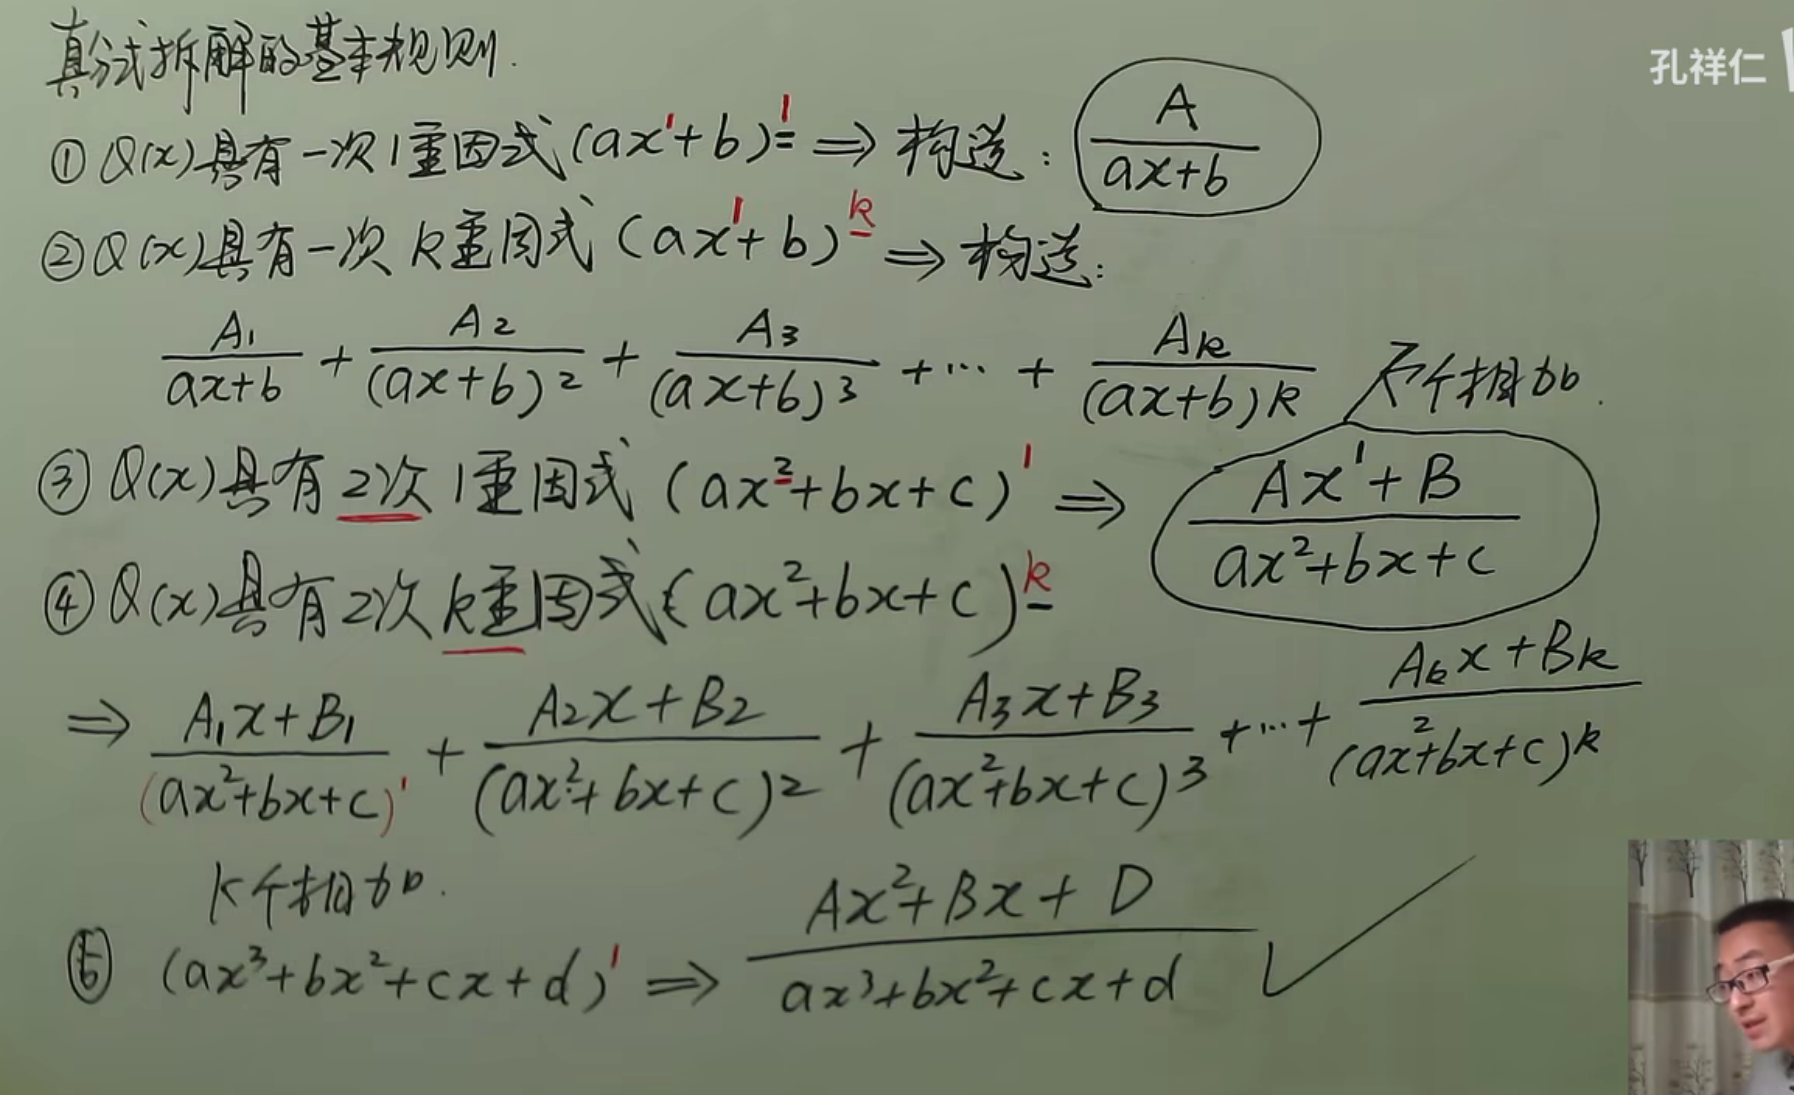 真分式拆解的基本规则.
孔祥仁
① Q(x)具有一次1重因式(ax¹+b)¹ ⇒ 构造: A/(ax+b)
② Q(x)具有一次k重因式(ax¹+b)^k ⇒ 构造:
A₁/(ax+b) + A₂/(ax+b)² + A₃/(ax+b)³ + … + A_k/(ax+b)^k k个相加.
③ Q(x)具有2次1重因式(ax²+bx+c)¹ ⇒ (Ax¹+B)/(ax²+bx+c)
④ Q(x)具有2次k重因式(ax²+bx+c)^k
⇒ (A₁x+B₁)/(ax²+bx+c)¹ + (A₂x+B₂)/(ax²+bx+c)² + (A₃x+B₃)/(ax²+bx+c)³ + … + (A_kx+B_k)/(ax²+bx+c)^k
k个相加.
⑤ (ax³+bx²+cx+d)¹ ⇒ (Ax²+Bx+D)/(ax³+bx²+cx+d)